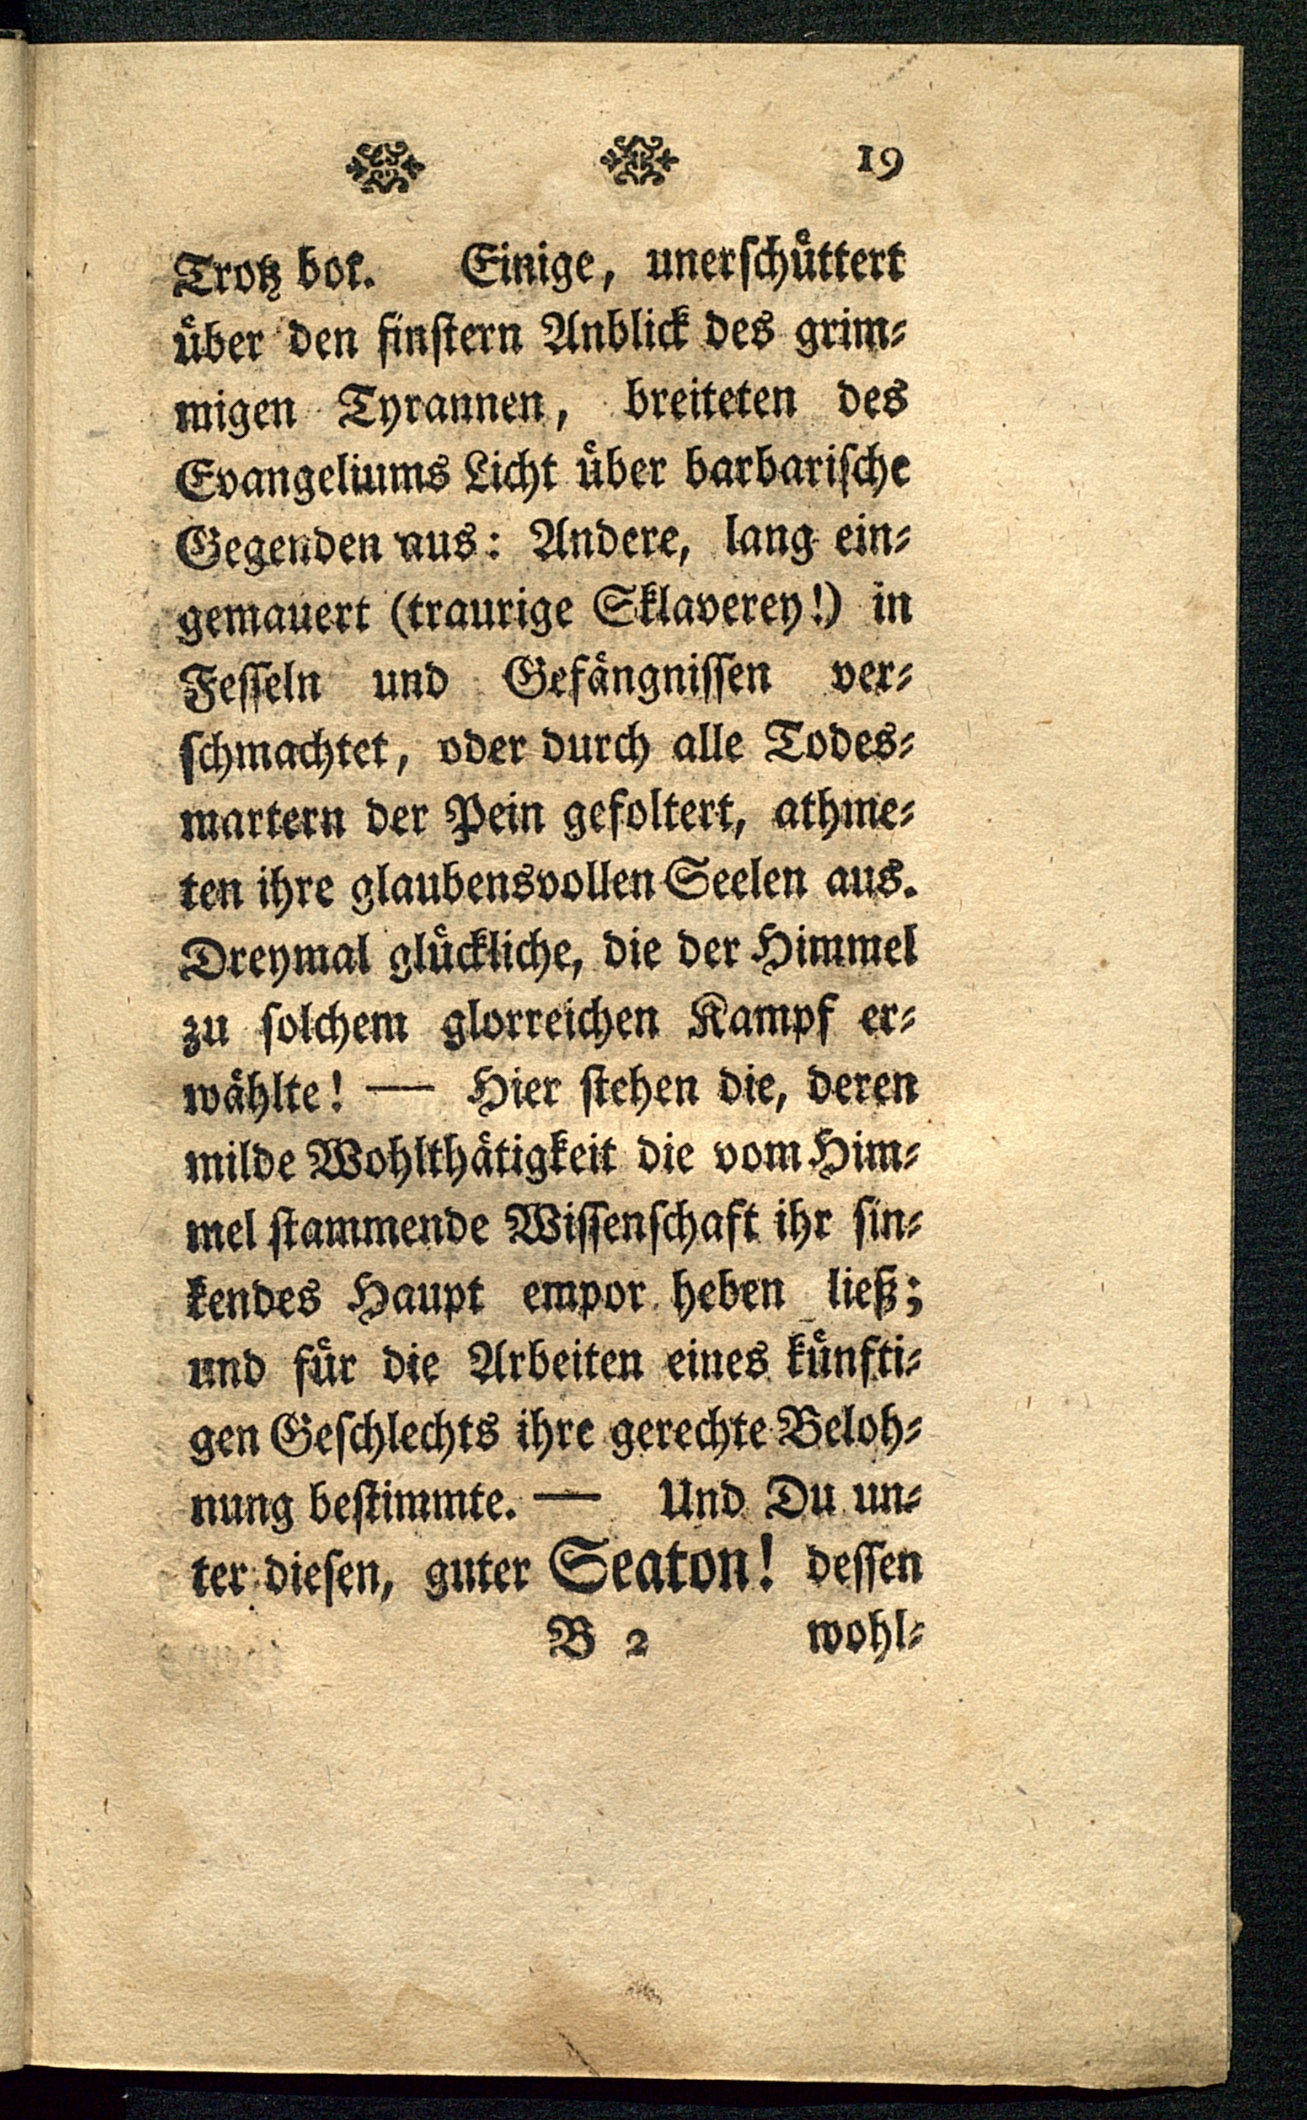 19
Trotz bot. Einige, unerschüttert
über den finstern Anblick des grim-
migen Tyrannen, breiteten des
Evangeliums Licht über barbarische
Gegenden aus: Andere, lang ein-
gemauert (traurige Sklaverey!) in
Fesseln und Gefängnissen ver-
schmachtet, oder durch alle Todes-
martern der Pein gefoltert, athme-
ten ihre glaubensvollen Seelen aus.
Dreymal glückliche, die der Himmel
zu solchem glorreichen Kampf er-
wählte! — Hier stehen die, deren
milde Wohlthätigkeit die vom Him-
mel stammende Wissenschaft ihr sin-
kendes Haupt empor heben ließ;
und für die Arbeiten eines künfti-
gen Geschlechts ihre gerechte Beloh-
nung bestimmte. — Und Du un-
ter diesen, guter Seaton! dessen
B 2 wohl-